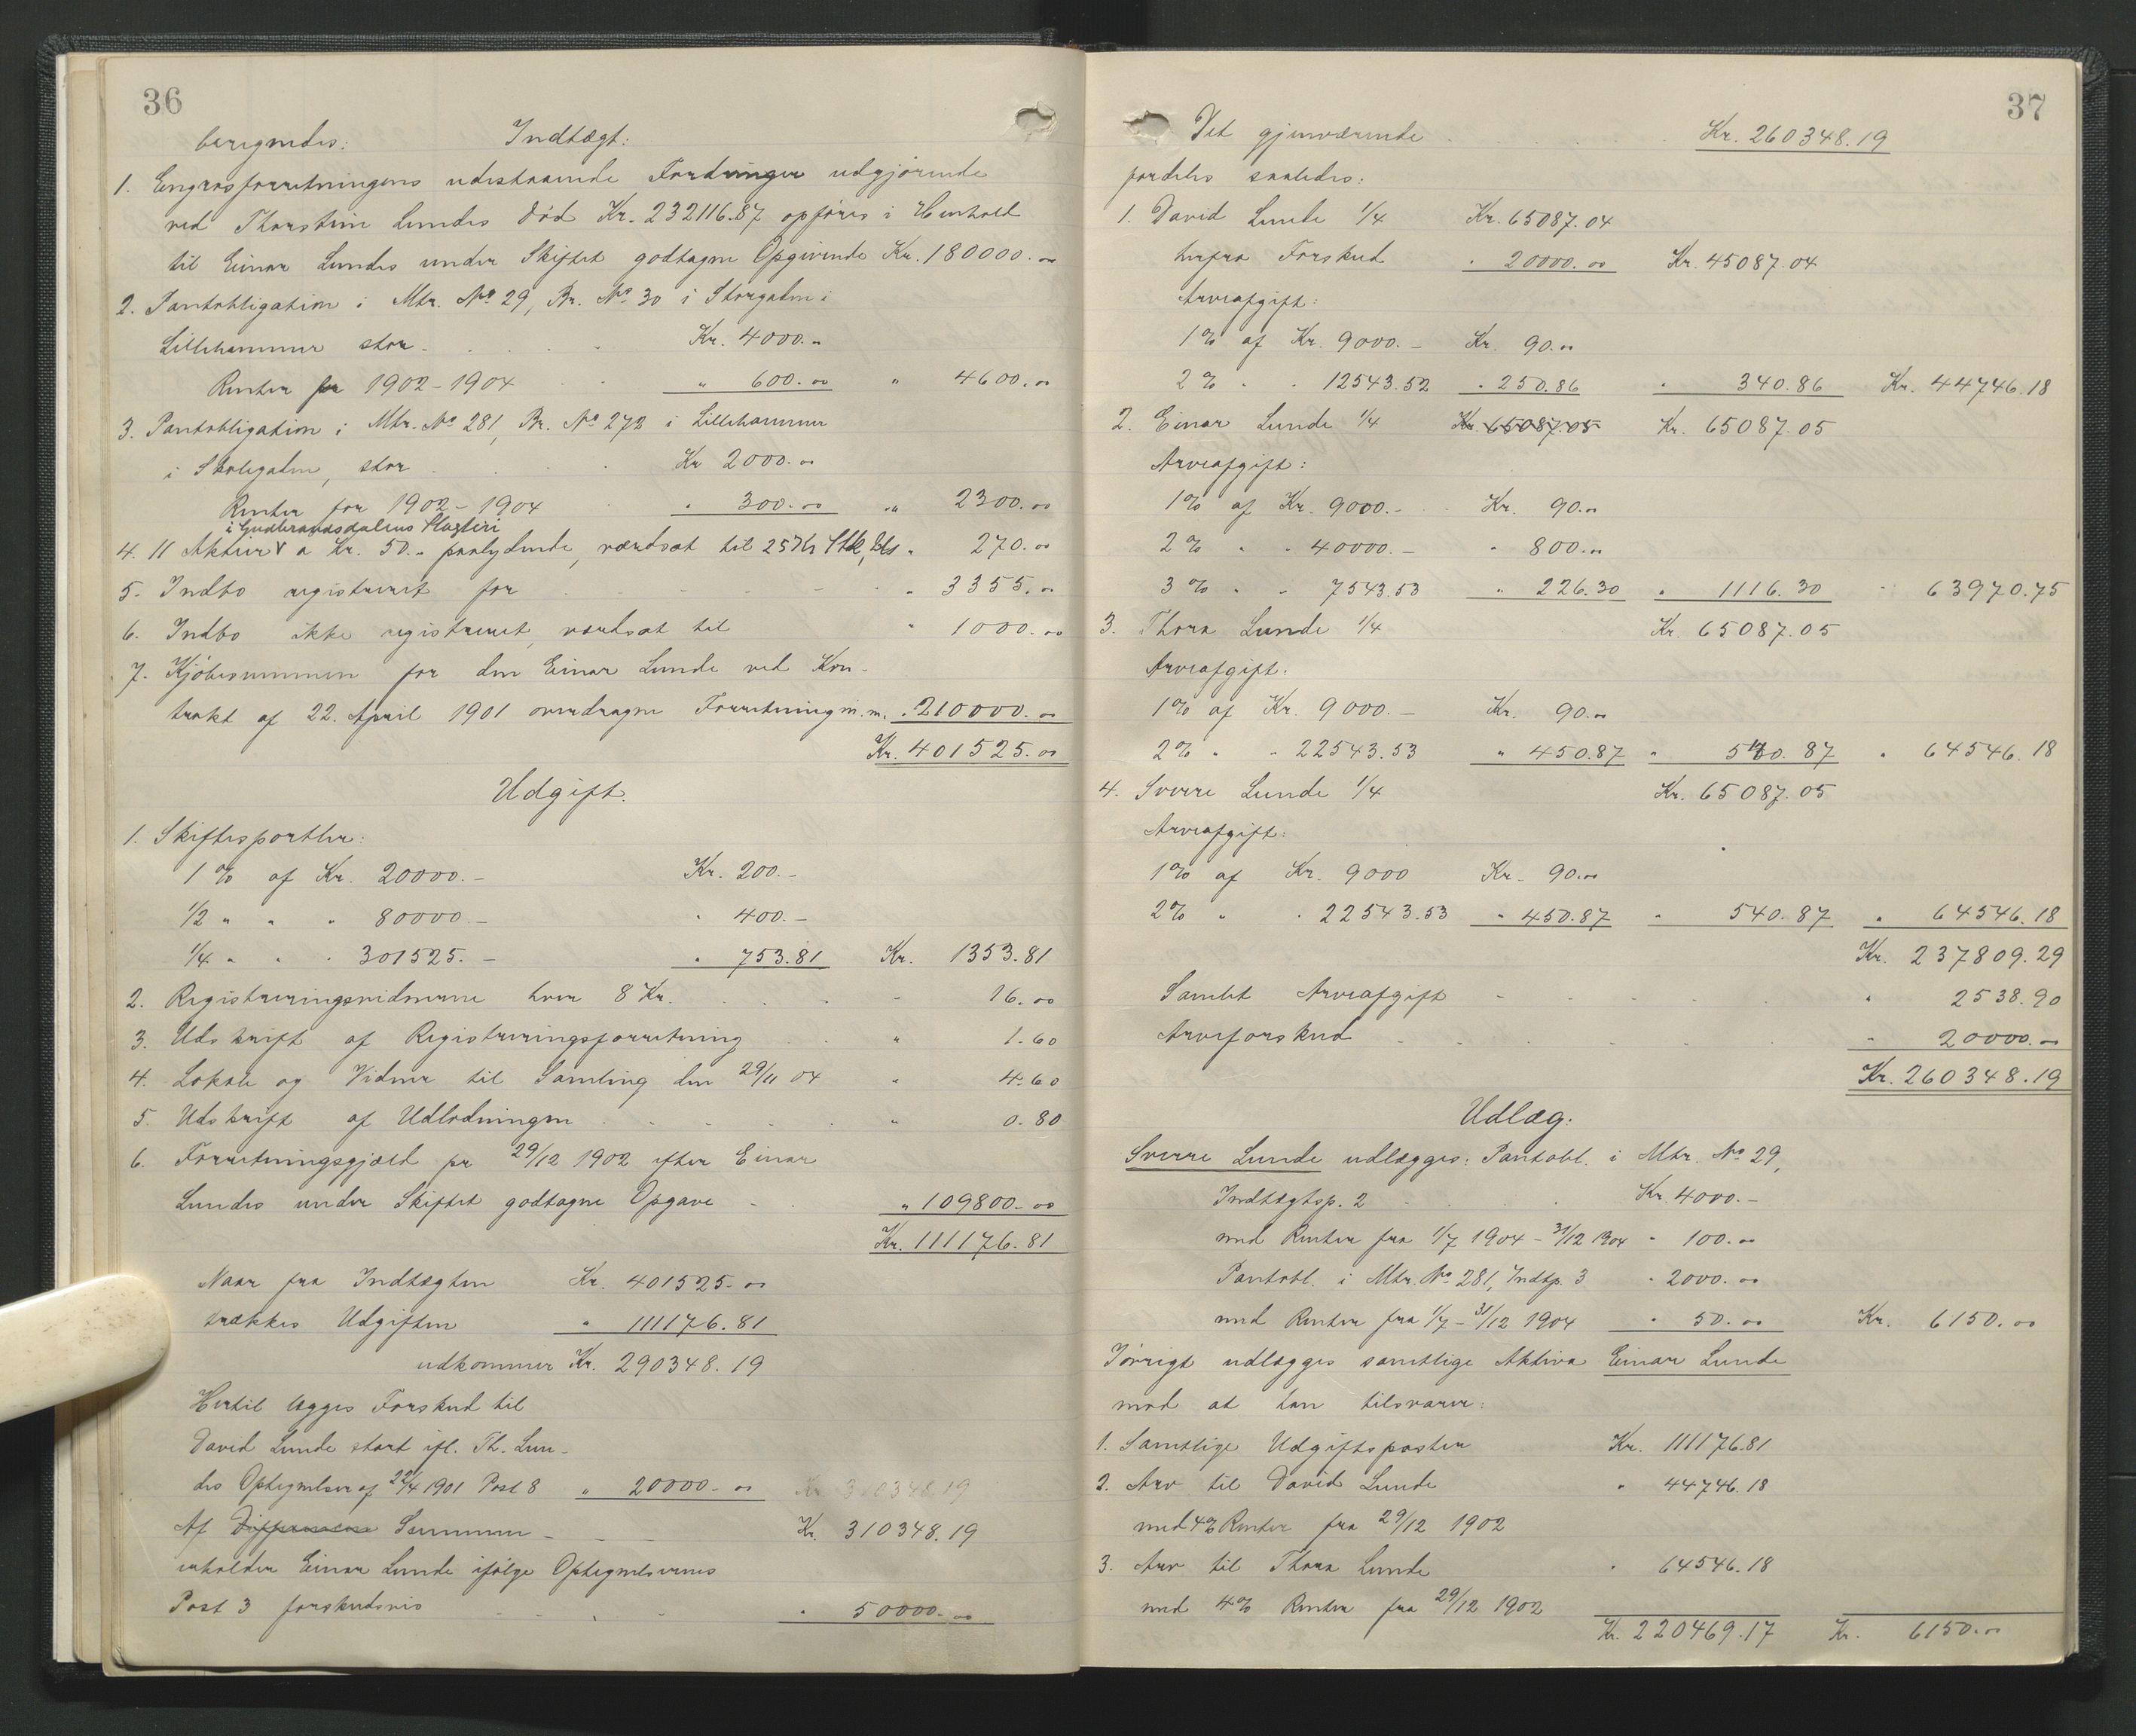 36
beregnedes: Indtægt:
1. Engrosforretningens udestaaende Fordringer udgjørende
ved Thorstein Lundes død Kr. 232116.87 opføres i Henhold
til Einar Lundes under Skiftet godtagne Opgivende Kr. 180000.00
2. Pantobligation i Mtr. No 29, Br. No 30 i Storgaden i
Lillehammer stor. Kr. 4000.00
Renter for 1902-1904 " 600.00 " 4600.00
3. Pantobligation i Mtr. No 281, Br. No 272 i Lillehammer
i Skolegaden, stor Kr 2000.00
Renter for 1902-1904 " 300.00 " 2300.00
i Gudbrandsdalens Slagteri
4. 11 Aktier v a Kr. 50.- paalydende, værdsat til 25 Kr Stk, " 270.00
5. Indbo registreret for " 3355.00
6. Indbo ikke registreret, værdsat til " 1000.00
7. Kjöbesummen for den Einar Lunde ved Kon-
trakt af 22. April 1901 overdragne Forretning m.m. " 210000.00
Kr. 401525.00
Udgift.
1. Skiftesportler:
1 % af Kr. 20000.- Kr. 200.-
1/2 " " " 80000.- " 400.-
1/4 " " " 301525.- " 753.81 Kr. 1353.81
2. Registreringsvidnerne hver 8 Kr. " 16.00
3. Udskrift af Registreringsforretning " 1.60
4. Lokale og Vidner til Samling den 29/11 04 " 4.60
5. Udskrift af Udlodningen " 0.80
6. Forretningsgjæld pr 29/12 1902 efter Einar
Lundes under Skiftet godtagne Opgave " 109800.00
Kr. 111176.81
Naar fra Indtægten Kr. 401525.00
trækkes Udgiften " 111176.81
udkommer Kr. 290348.19
Hertil lægges Forskud til
David Lunde stort ifl. Th. Lun-
des Optegnelser af 22/4 1901 Post 8 " 20000.00 Kr 310348.19
Af Differencen Summen Kr. 310348.19
erholder Einar Lunde ifölge Optegnelsernes
Post 3 forskudsvis " 50000.00
37
Det gjenværende Kr. 260348.19
fordeles saaledes:
1. David Lunde 1/4 Kr. 65087.04
herfra Forskud " 20000.00 Kr. 45087.04
Arveafgift:
1% af Kr. 9000.- Kr. 90.00
2% " " 12543.52 " 250.86 " 340.86 Kr. 44746.18
2. Einar Lunde 1/4 Kr. 65087.05 Kr. 65087.05
Arveafgift:
1% af Kr. 9000.- Kr. 90.00
2% " " 40000.- " 800.00
3% " " 7543.53 " 226.30 " 1116.30 " 63970.75
3. Thora Lunde 1/4 Kr. 65087.05
Arveafgift:
1% af Kr. 9000.- Kr. 90.00
2% " " 22543.53 " 450.87 " 540.87 " 64546.18
4. Sverre Lunde 1/4 Kr. 65087.05
Arveafgift:
1% af Kr. 9000 Kr. 90.00
2% " " 22543.53 " 450.87 " 540.87 " 64546.18
Kr. 237809.29
Samlet Arveafgift " 2538.90
Arveforskud " 20000.00
Kr. 260348.19
Udlæg:
Sverre Lunde udlægges: Pantobl. i Mtr. No 29,
Indtægtsp. 2 Kr. 4000.-
med Renter fra 1/7 1904 - 31/12 1904 " 100.00
Pantobl. i Mtr. No 281, Indtp. 3 " 2000.00
med Renter fra 1/7 - 31/12 1904 " 50.00 Kr. 6150.00
Iövrigt udlægges samtlige Aktiva Einar Lunde
mod at han tilsvarer:
1. Samtlige Udgiftsposter Kr. 111176.81
2. Arv til David Lunde " 44746.18
med 4% Renter fra 29/12 1902
3. Arv til Thora Lunde " 64546.18
med 4% Renter fra 29/12 1902
Kr. 220469.17 Kr. 6150.00